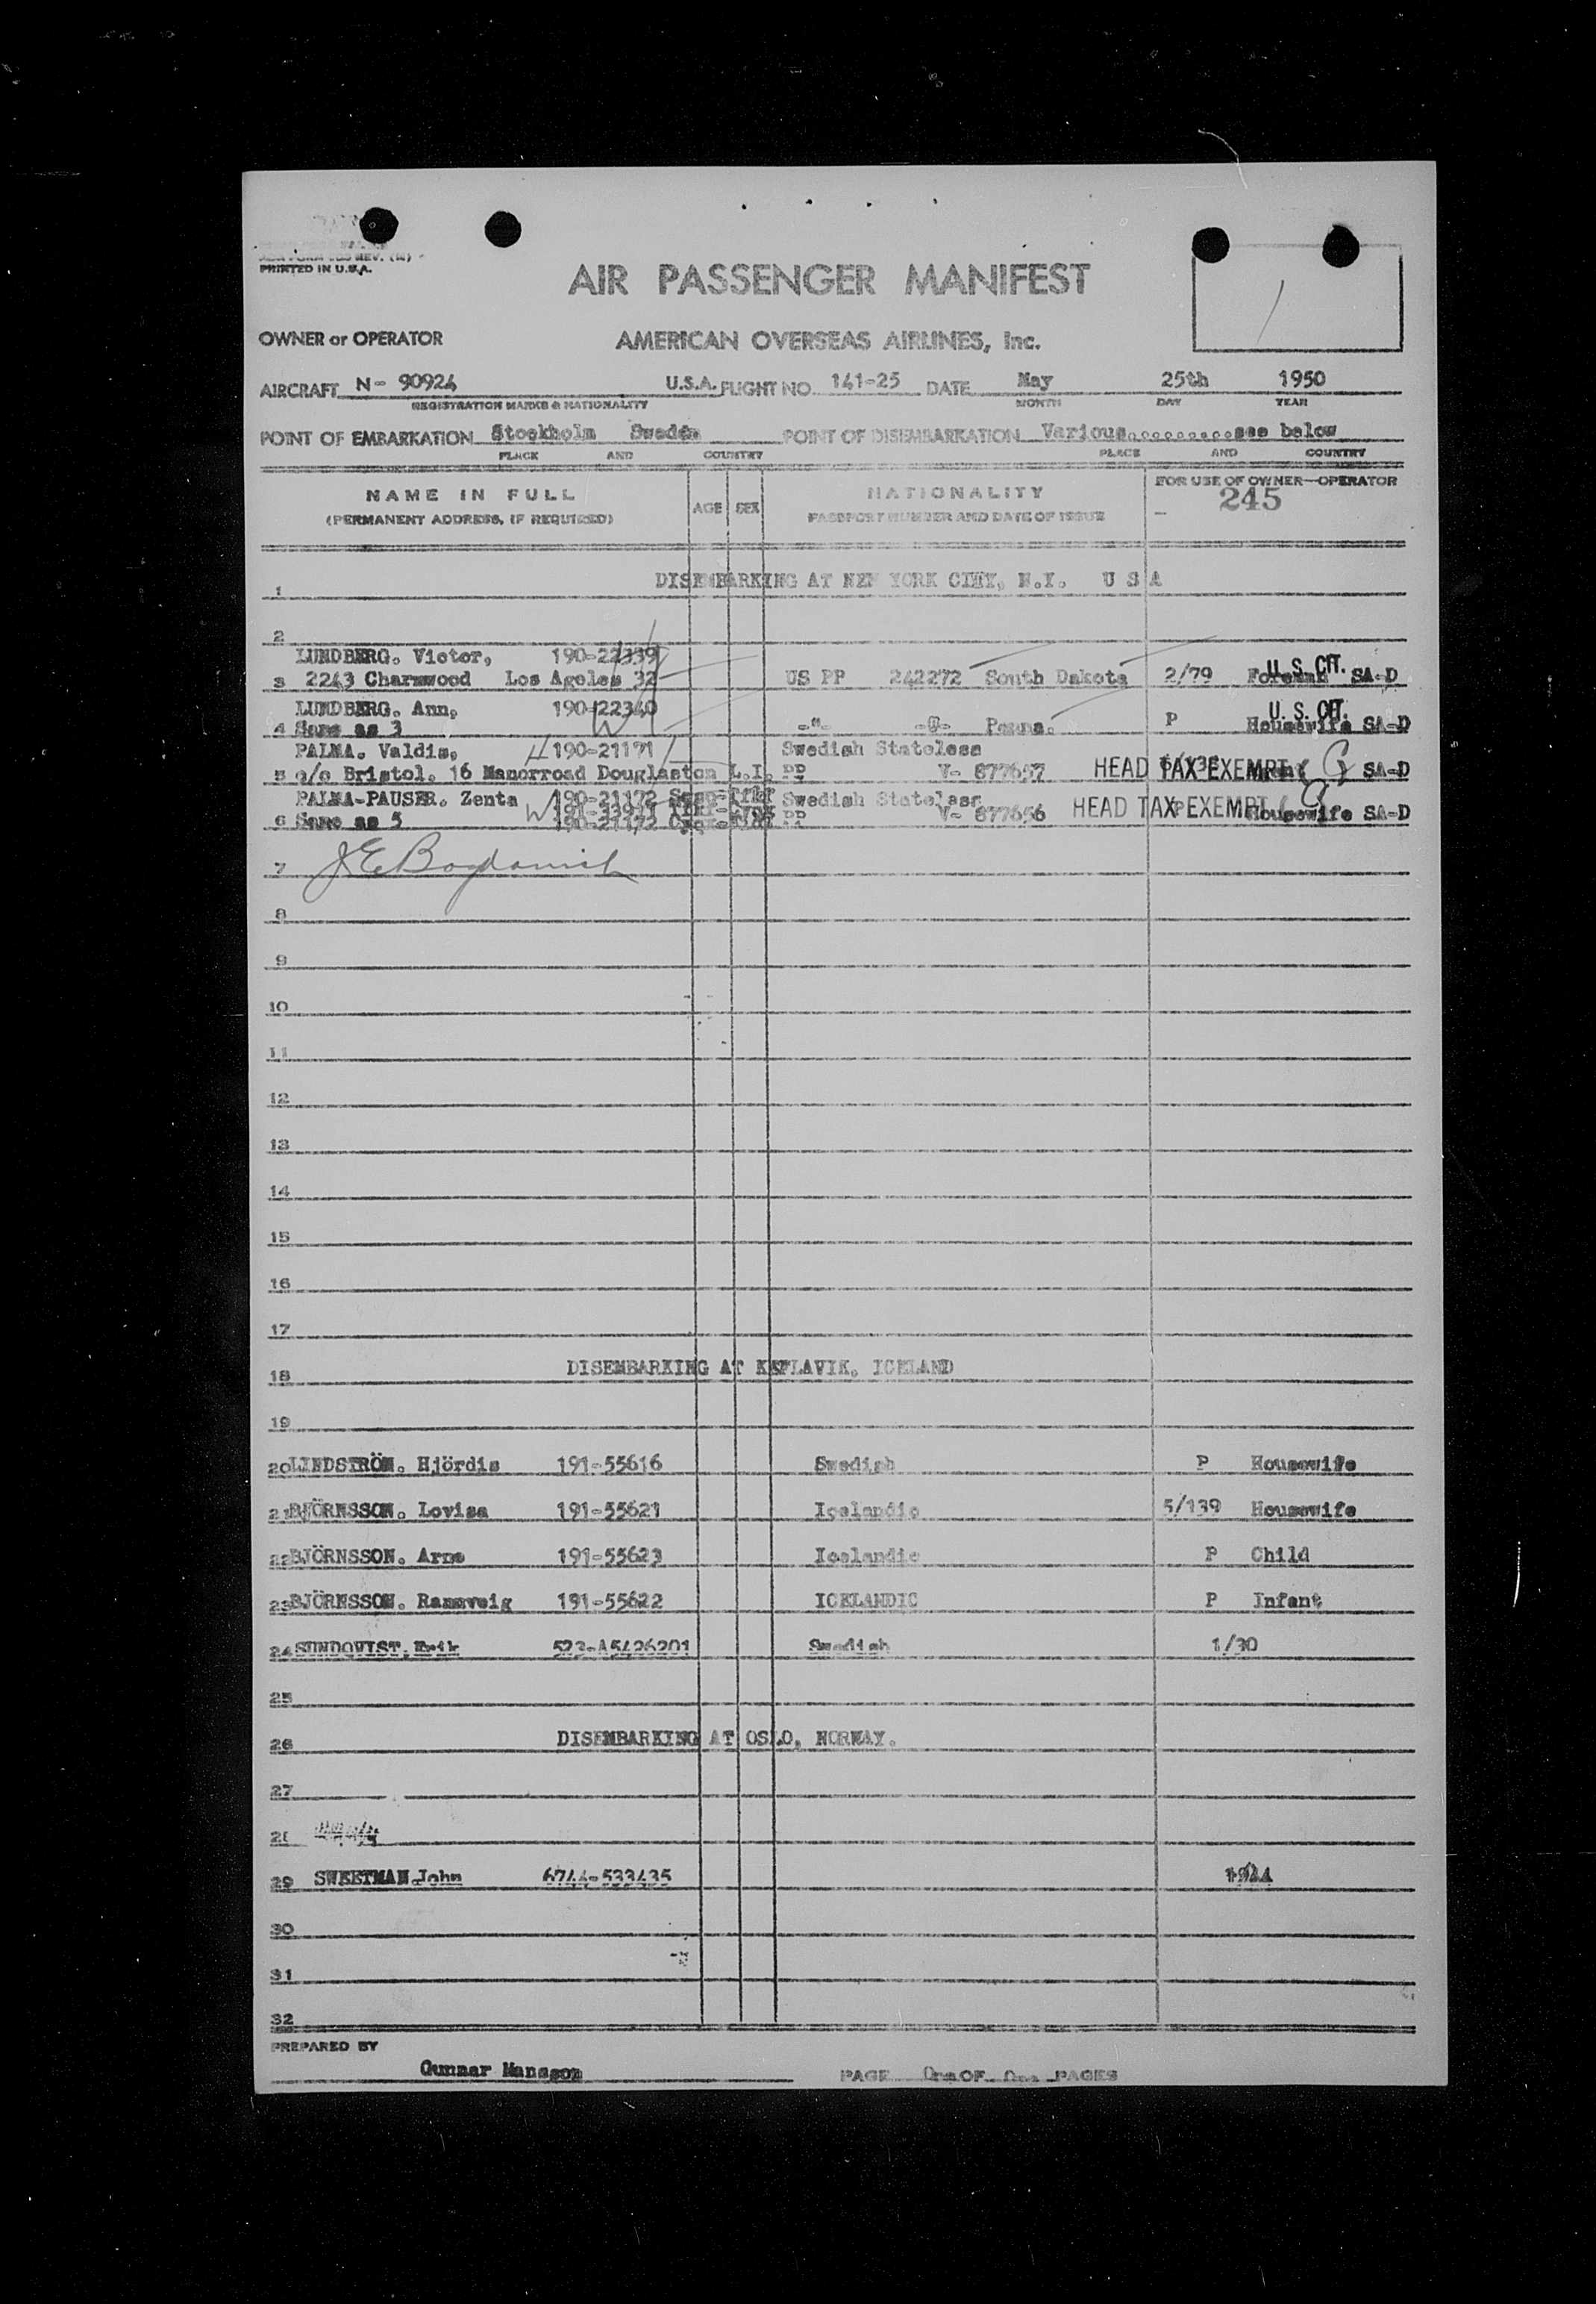 PRINTED IN U.S.A.
AIR PASSENGER MANIFEST
OWNER or OPERATOR AMERICAN OVERSEAS AIRLINES, Inc.
AIRCRAFT N- 90924 U.S.A. FLIGHT NO. 141-25 DATE May 25th 1950
REGISTRATION MARKS & NATIONALITY MONTH DAY YEAR
POINT OF EMBARKATION Stockholm Sweden POINT OF DISEMBARKATION Various..........see below
PLACE AND COUNTRY PLACE AND COUNTRY
NAME IN FULL AGE SEX NATIONALITY FOR USE OF OWNER—OPERATOR
(PERMANENT ADDRESS, IF REQUIRED) PASSPORT NUMBER AND DATE OF ISSUE 245
1 DISEMBARKING AT NEW YORK CITY, N.Y. U S A
2
LUNDBERG. Victor, 190-22339 U. S. CIT.
3 2243 Charmwood Los Ageles 32 US PP 242272 South Dakota 2/79 Foreman SA-D
LUNDBERG. Ann, 190-22340 U. S. CIT.
4 Same as 3 -"- -"- Penna. P Housewife SA-D
PALMA. Valdis, 190-21171 Swedish Stateless
5 c/o Bristol. 16 Manorroad Douglaston L.I. PP V- 877657 HEAD TAX EXEMPT SA-D
PALMA-PAUSER. Zenta 190-21172 Swedish Stateless
6 Same as 5 PP V- 877656 HEAD TAX EXEMPT P Housewife SA-D
7
8
9
10
11
12
13
14
15
16
17
18 DISEMBARKING AT KEFLAVIK, ICELAND
19
20 LINDSTRÖM. Hjördis 191-55616 Swedish P Housewife
21 BJÖRNSSON. Lovisa 191-55621 Icelandic 5/139 Housewife
22 BJÖRNSSON. Arne 191-55623 Icelandic P Child
23 BJÖRNSSON. Rannveig 191-55622 ICELANDIC P Infant
24 SUNDQVIST, Erik 523-A5426201 Swedish 1/30
25
26 DISEMBARKING AT OSLO, NORWAY.
27
29 SWEETMAN John 6744-533435
30
31
32
PREPARED BY
Gunnar Mansson PAGE One OF One PAGES